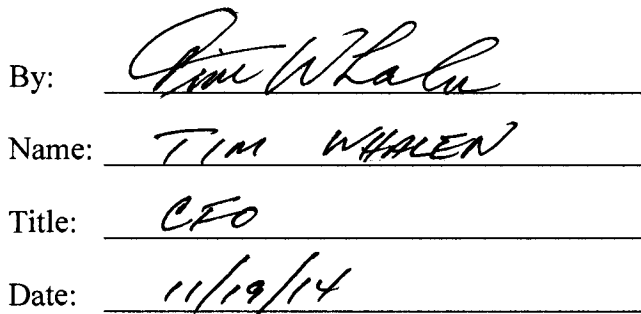 By: Tim Whalen
Name: TIM WHALEN
Title: CFO
Date: 11/19/14